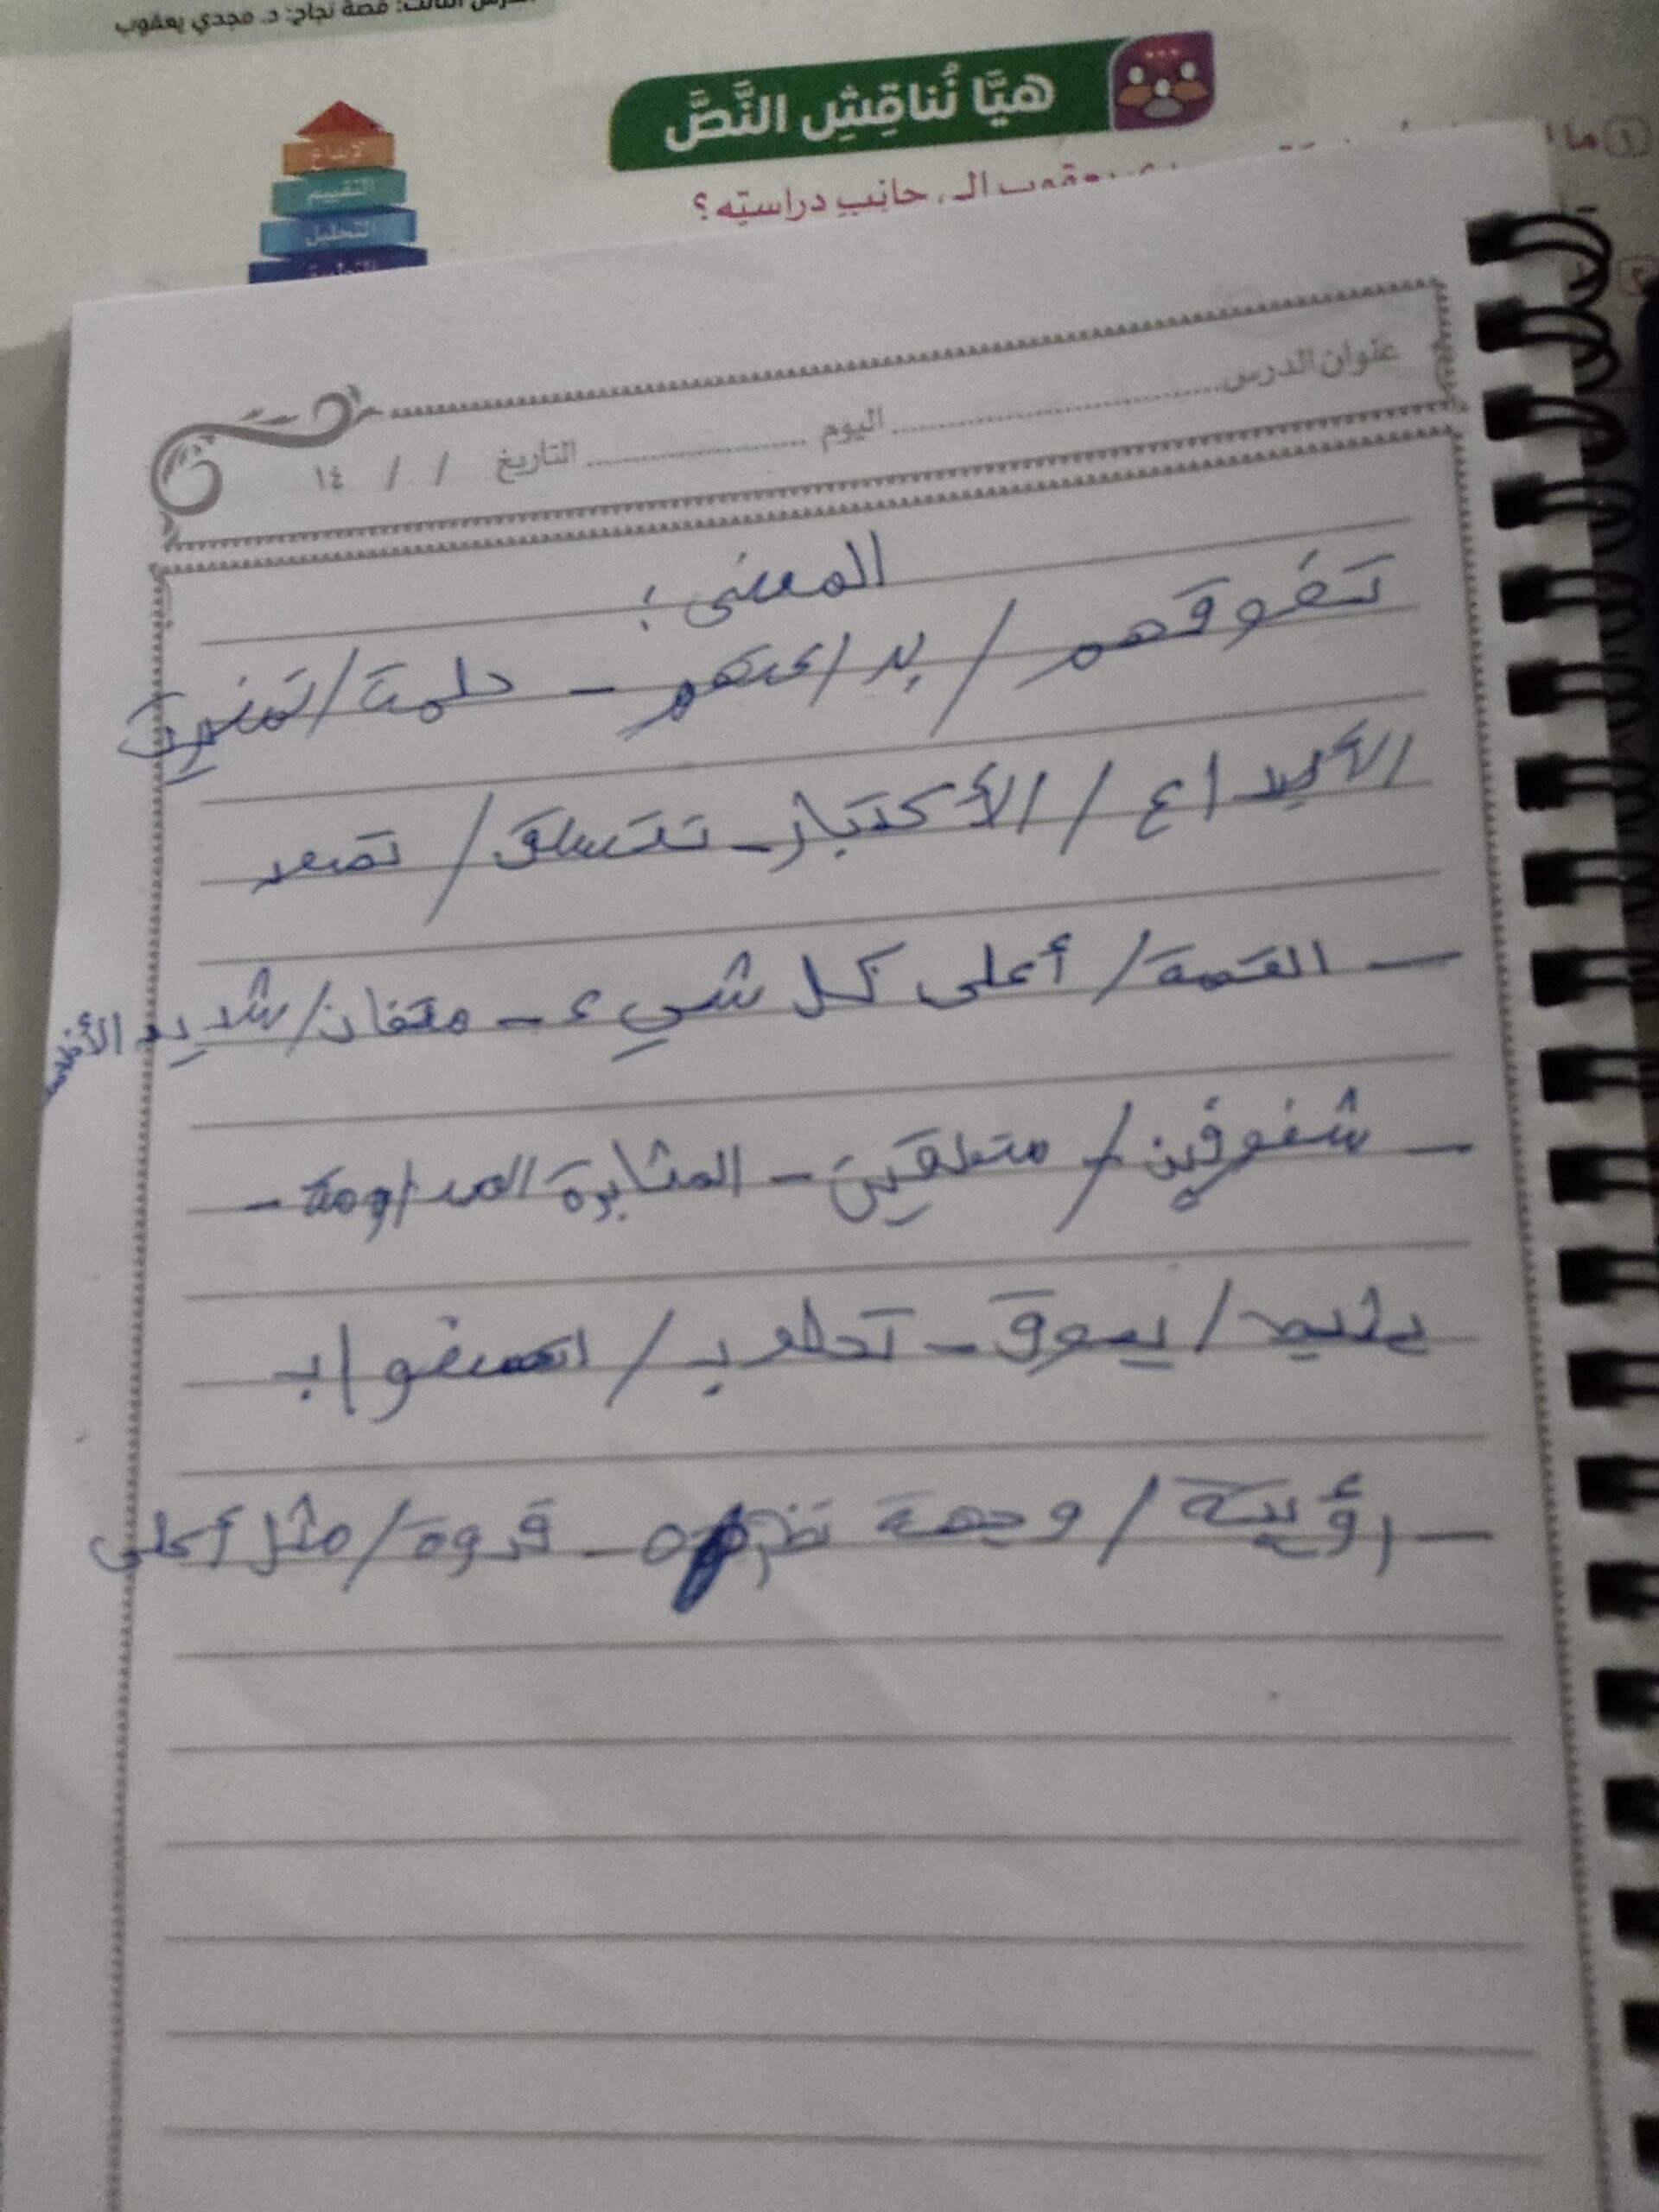 الدرس الثالث: قصة نجاح: د. مجدي يعقوب
هيَّا نُناقِشِ النَّصَّ
١ ما
جانِبِ دراستِه؟
٢
الإبداع
التقييم
التحليل
التطبيق
عنوان الدرس
اليوم
التاريخ / / ١٤
المعنى :
تفوقهم / براعتهم - حلمت / تمنيت
الأبداع / الأكتبار - تتسلق / تصعد
- القمة / أعلى كل شيء - متفان / شديد الأخلا
- شغوفين / متعلقين - المثابرة المداومة -
/ يسوق -
- رؤية / وجهة نظر - قدوة / مثل أعلى